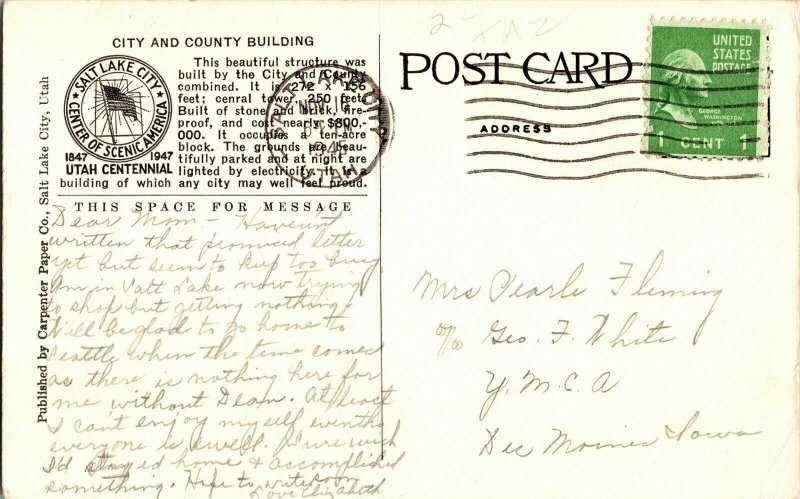 2-
CITY AND COUNTY BUILDING
This beautiful structure was
built by the City and County
combined. It is 272 x 156
feet; cenral tower, 250 feet.
Built of stone and brick, fire-
proof, and cost nearly $800,-
000. It occupies a ten-acre
block. The grounds are beau-
tifully parked and at night are
lighted by electricity. It is a
building of which any city may well feel proud.
SALT LAKE CITY
CENTER OF SCENIC AMERICA
1847 1947
UTAH CENTENNIAL
SALT LAKE CITY
UTAH
POST CARD
ADDRESS
UNITED
STATES
POSTAGE
WASHINGTON
1 CENT 1
Published by Carpenter Paper Co., Salt Lake City, Utah
THIS SPACE FOR MESSAGE
Dear Mom - Haven't
written that promised letter
yet but seem to keep too busy.
Am in Salt Lake now trying
to shop but getting nothing.
Will be glad to go home to
Seattle when the time comes
as there is nothing here for
me without Dean. At least
I can't enjoy myself eventho
everyone is swell. Sure wish
I'd stayed home & accomplished
something. Hope to write soon
Love Elizabeth
Mrs Pearle Fleming
c/o Geo. F. White
Y.M.C.A
Des Moines Iowa